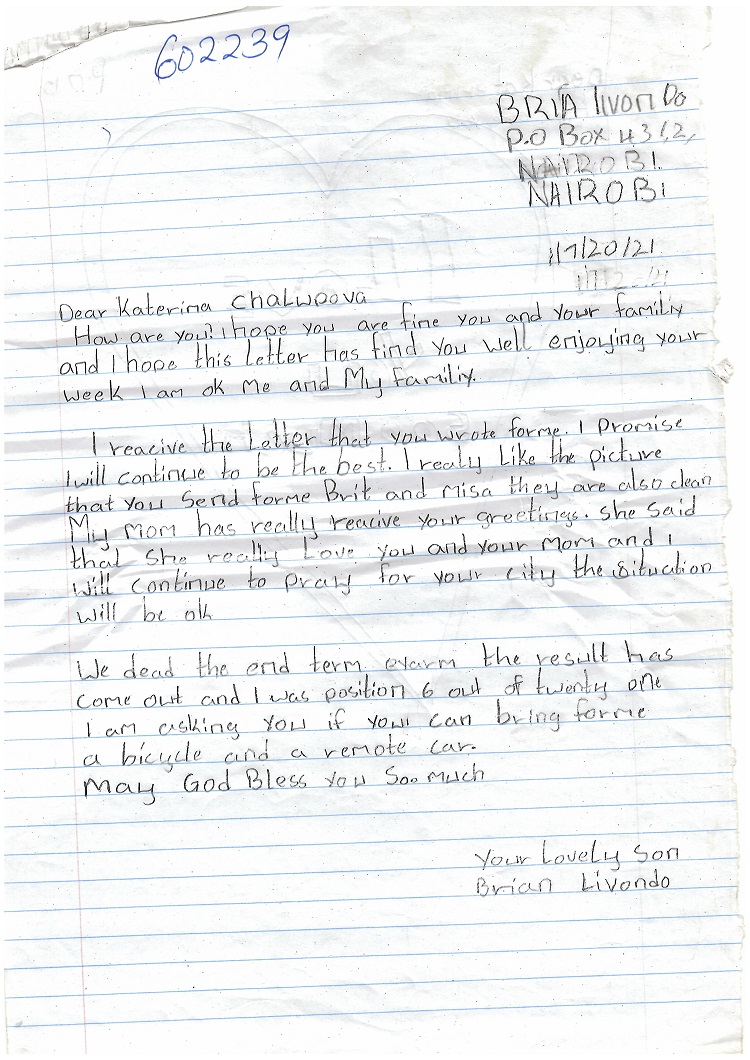 602239
BRIA livondo
P.O Box 4312,
NAIROBI.
NAIROBI
1/7/20/21
Dear Katerina Chalwpova
How are you? I hope you are fine you and your familiy
and I hope this Letter has find you well enjoying your
week I am ok Me and My Familiy.
I reacive the Letter that you wrote forme. I Promise
I will continue to be the best. I realy Like the picture
that you Send forme Brit and misa they are also clean
My mom has really reacive your greetings. She Said
that She really Love you and your Mom and I
will continue to pray for your city the situation
will be ok
We dead the end term exarm the result has
come out and I was position 6 out of twenty one
I am asking you if you can bring forme
a bicycle and a remote car.
May God Bless you Soo much
Your Lovely Son
Brian Livondo